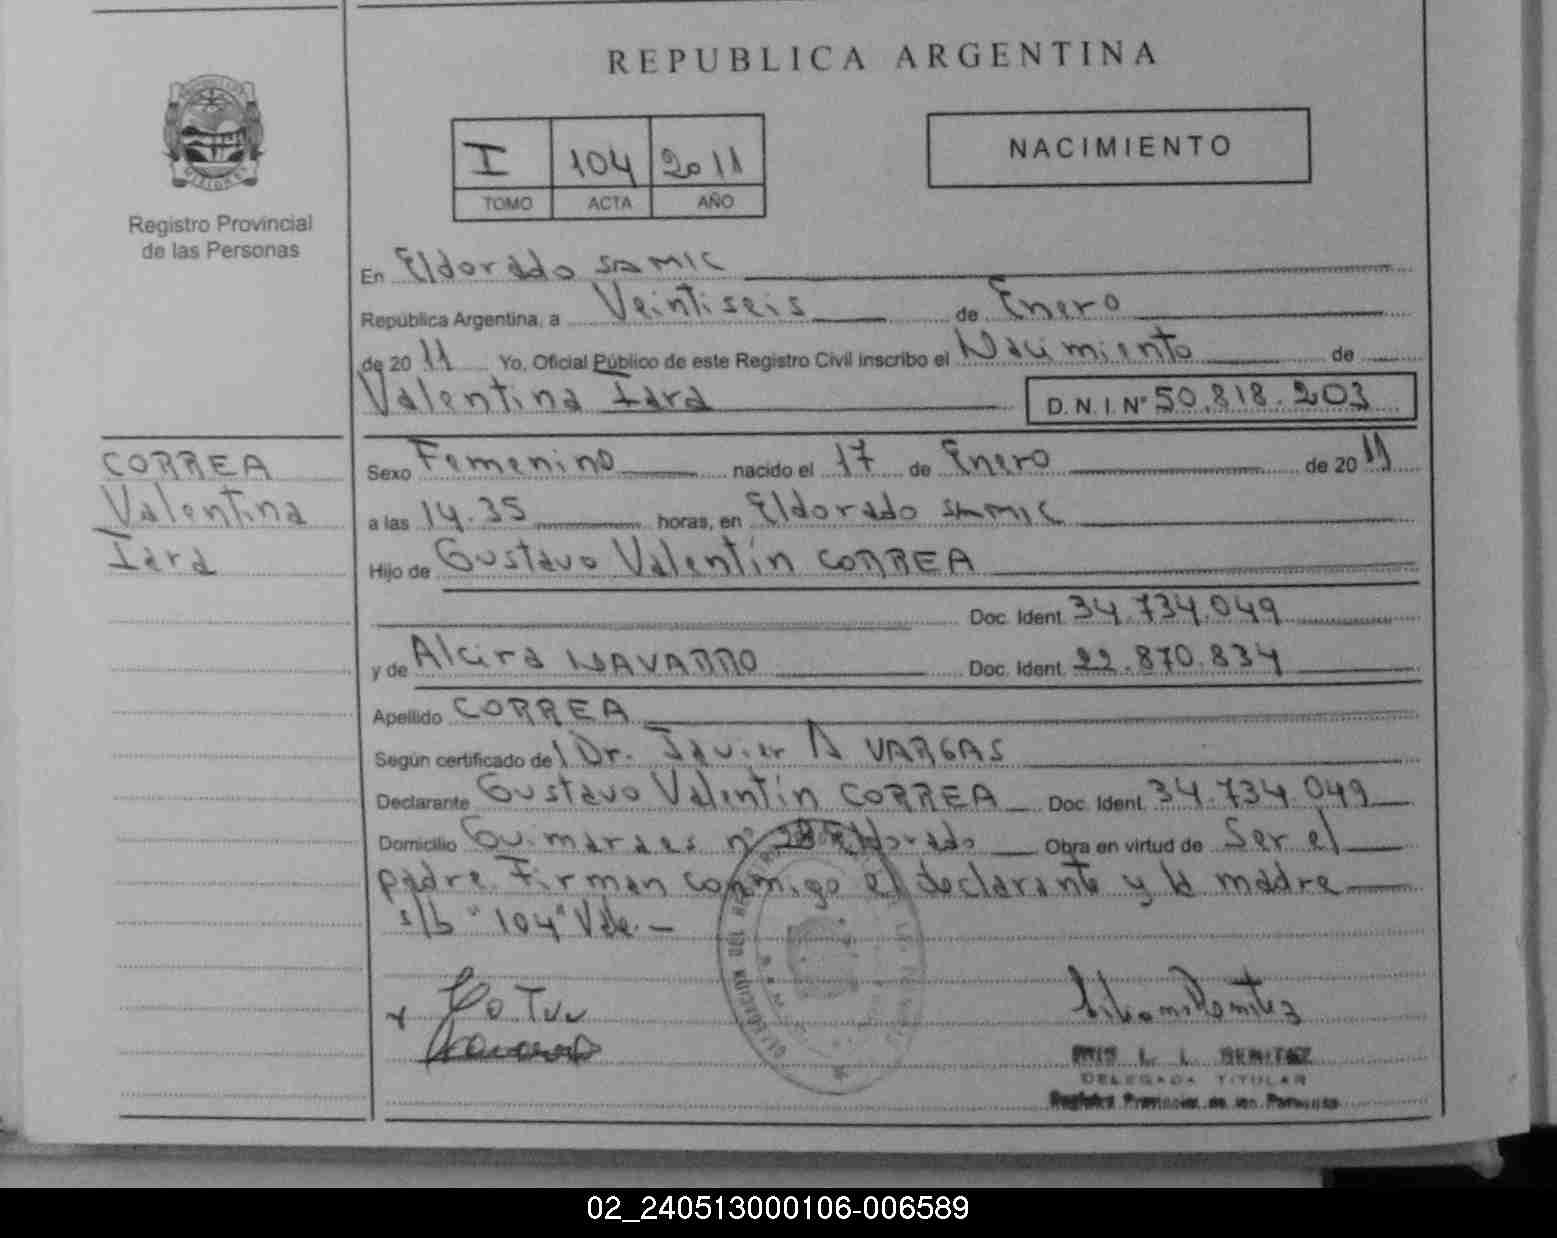 REPUBLICA ARGENTINA
Registro Provincial
de las Personas
I 104 2011
TOMO ACTA AÑO
NACIMIENTO
En Eldorado SAMIC
República Argentina, a Veintiseis de Enero
de 2011 Yo, Oficial Público de este Registro Civil inscribo el Nacimiento de
Valentina Iara D.N.I. Nº 50.818.203
CORREA
Valentina
Iara
Sexo Femenino nacido el 17 de Enero de 2011
a las 14.35 horas, en Eldorado SAMIC
Hijo de Gustavo Valentín CORREA
Doc. Ident. 34.734.049
y de Alcira NAVARRO Doc. Ident. 22.870.834
Apellido CORREA
Según certificado de l Dr. Javier A VARGAS
Declarante Gustavo Valentín CORREA Doc. Ident. 34.734.049
Domicilio Guimaraes nº Eldorado Obra en virtud de Ser el
padre Firman conmigo el declarante y la madre
s/b "104" Vale.-
DELEGADA TITULAR
Registro Provincial de las Personas
02_240513000106-006589